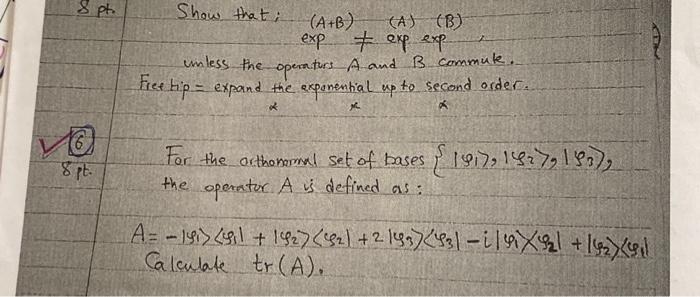 8 pt.
Show that:
exp (A+B) ≠ exp (A) exp (B),
unless the operators A and B commute.
Free tip = expand the exponential up to second order.
* * *
6
8 pt.
For the orthonormal set of bases { |φ₁⟩, |φ₂⟩, |φ₃⟩,
the operator A is defined as:
A = -|φ₁⟩⟨φ₁| + |φ₂⟩⟨φ₂| + 2|φ₃⟩⟨φ₃| - i|φ₁⟩⟨φ₂| + |φ₂⟩⟨φ₁|
Calculate tr(A).